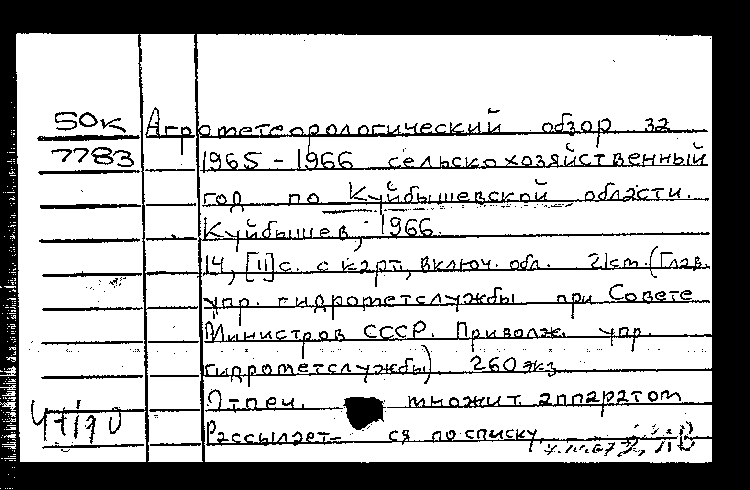 50к Агрометеорологический обзор за
7783 1965-1966 сельскохозяйственный
год по Куйбышевской области.
Куйбышев, 1966.
14, [11]с. с карт, включ. обл. 21см. (Глав.
упр. гидрометслужбы при Совете
Министров СССР. Приволж. упр.
гидрометслужбы). 260 экз.
Отпеч. множит. аппаратом
Рассылает- ся по списку.